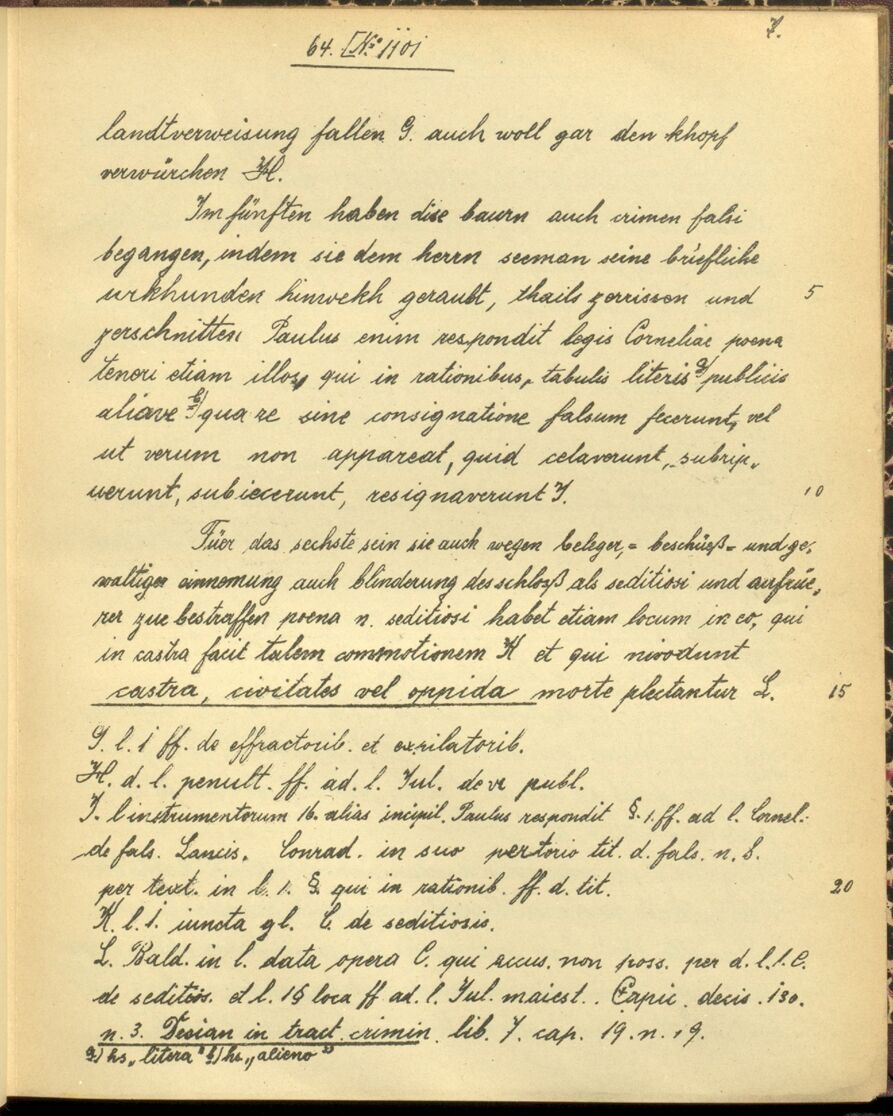 7.
64. [No. 1101
landtverweisung fallen G. auch woll gar den khopf
verwürchen H.
Im fünften haben dise baurn auch crimen falsi
begangen, indem sie dem herrn seeman seine briefliche
urkhunden hinwekh geraubt, thails zerrissen und 5
zerschnitten Paulus enim respondit legis Corneliae poena
teneri etiam illos, qui in rationibus, tabulis literis a) publicis
aliave b) qua re sine consignatione falsum fecerunt, vel
ut verum non appareat, quid celaverunt, subrip„
uerunt, subiecerunt, resignaverunt J. 10
Füer das sechste sein sie auch wegen beleger,= beschüeß= und ge,
waltiger einnemung auch blinderung des schloß als seditiosi und aufrüe,
rer zue bestraffen poena n. seditiosi habet etiam locum in eo, qui
in castra facit talem commotionem K et qui
castra, civitates vel oppida morte plectantur L. 15
G. l. 1 ff. de effractorib. et expilatorib.
H. d. l. penult. ff. ad. l. Jul. de vi publ.
J. l instrumentorum 16. alias incipil. Paulus respondit §. 1. ff. ad l. Cornel.
de fals. Lancis. Conrad. in suo pertorio tit. d. fals. n. 8.
per text. in l. 1. §. qui in rationib. ff. d. tit. 20
K. l. 1. iuncta gl. C. de seditiosis.
L. Bald. in l. data opera C. qui accus. non poss. per d. l. 1. C.
de seditios. et l. 1 § loca ff ad. l. Jul. maiest. Capic. decis. 130.
n. 3. Decian in tract. crimin. lib. 7. cap. 19. n. 19.
a) hs „litera" b) hs. „alieno"